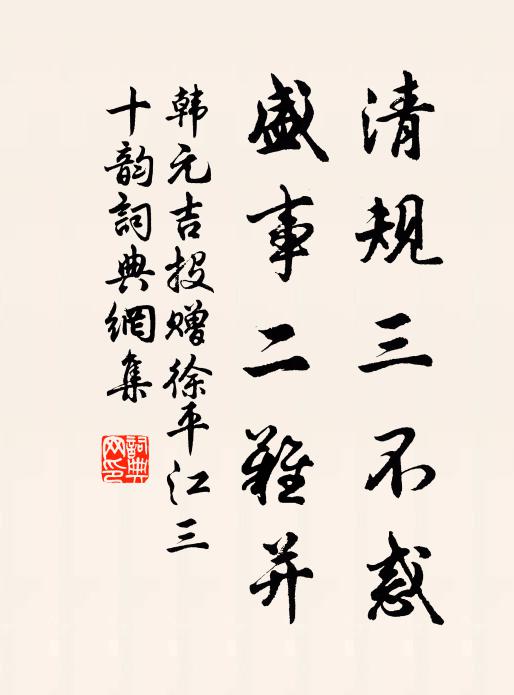 清规三不惑
盛事二难并
韩元吉投赠徐平江三
十韵詞典網集
詞典网印